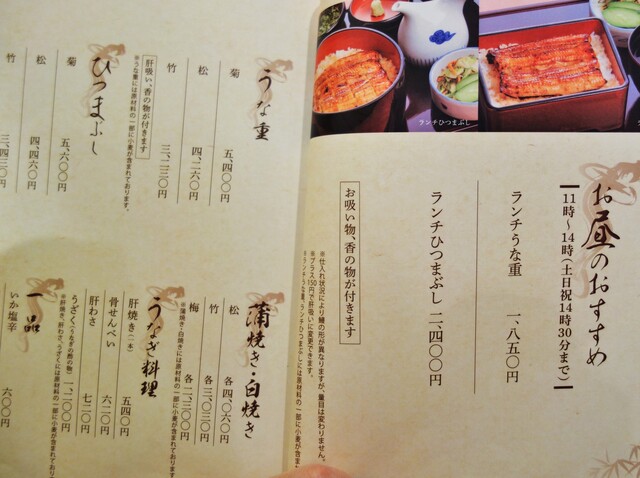 ランチひつまぶし
お昼のおすすめ
11時～14時(土日祝14時30分まで)
ランチうな重 一、八五〇円
ランチひつまぶし 二、四〇〇円
お吸い物、香の物が付きます
※仕入れ状況により鰻の形が異なりますが、量目は変わりません。
※プラス150円で肝吸いに変更できます。
※ランチうな重、ランチひつまぶしには原材料の一部に小麦が含まれております。
うな重
菊 五、四〇〇円
松 四、二六〇円
竹 三、二三〇円
肝吸い、香の物が付きます
※うな重には原材料の一部に小麦が含まれております。
ひつまぶし
菊 五、六〇〇円
松 四、四六〇円
竹 三、四三〇円
蒲焼き・白焼き
松 各四、〇六〇円
竹 各三、〇三〇円
梅 各二、三三〇円
※蒲焼き・白焼きには原材料の一部に小麦が含まれております
うなぎ料理
肝焼き(一本) 五四〇円
骨せんべい 六二〇円
肝わさ 七二〇円
うざく(うなぎの酢の物) 一、二〇〇円
※肝焼き、肝わさ、うざくには原材料の一部に小麦が含まれております
一品
いか塩辛 六〇〇円